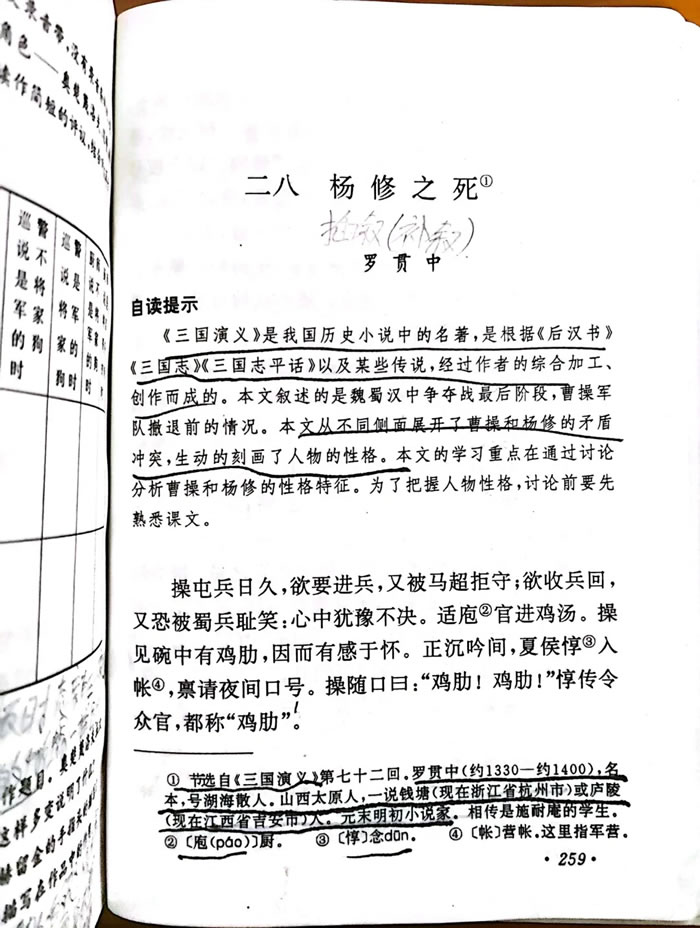 录音带，没有录音
角色——奥楚蔑洛夫
读作简短的评议
警不将家狗
巡说是军的时
警是军狗
巡说将家的时
二八 杨修之死①
插叙(补叙)
罗贯中
自读提示
《三国演义》是我国历史小说中的名著，是根据《后汉书》
《三国志》《三国志平话》以及某些传说，经过作者的综合加工、
创作而成的。本文叙述的是魏蜀汉中争夺战最后阶段，曹操军
队撤退前的情况。本文从不同侧面展开了曹操和杨修的矛盾
冲突，生动的刻画了人物的性格。本文的学习重点在通过讨论
分析曹操和杨修的性格特征。为了把握人物性格，讨论前要先
熟悉课文。
操屯兵日久，欲要进兵，又被马超拒守；欲收兵回，
又恐被蜀兵耻笑：心中犹豫不决。适庖②官进鸡汤。操
见碗中有鸡肋，因而有感于怀。正沉吟间，夏侯惇③入
帐④，禀请夜间口号。操随口曰：“鸡肋！鸡肋！”惇传令
众官，都称“鸡肋”。
① 节选自《三国演义》第七十二回。罗贯中（约1330—约1400），名
本，号湖海散人。山西太原人，一说钱塘（现在浙江省杭州市）或庐陵
（现在江西省吉安市）人。元末明初小说家。相传是施耐庵的学生。
② 〔庖(páo)〕厨。 ③ 〔惇〕念dūn。 ④ 〔帐〕营帐。这里指军营。
作题目。奥楚蔑洛夫
这样多变说明了什么
赫留金的手指头
描写在作品中的
·259·